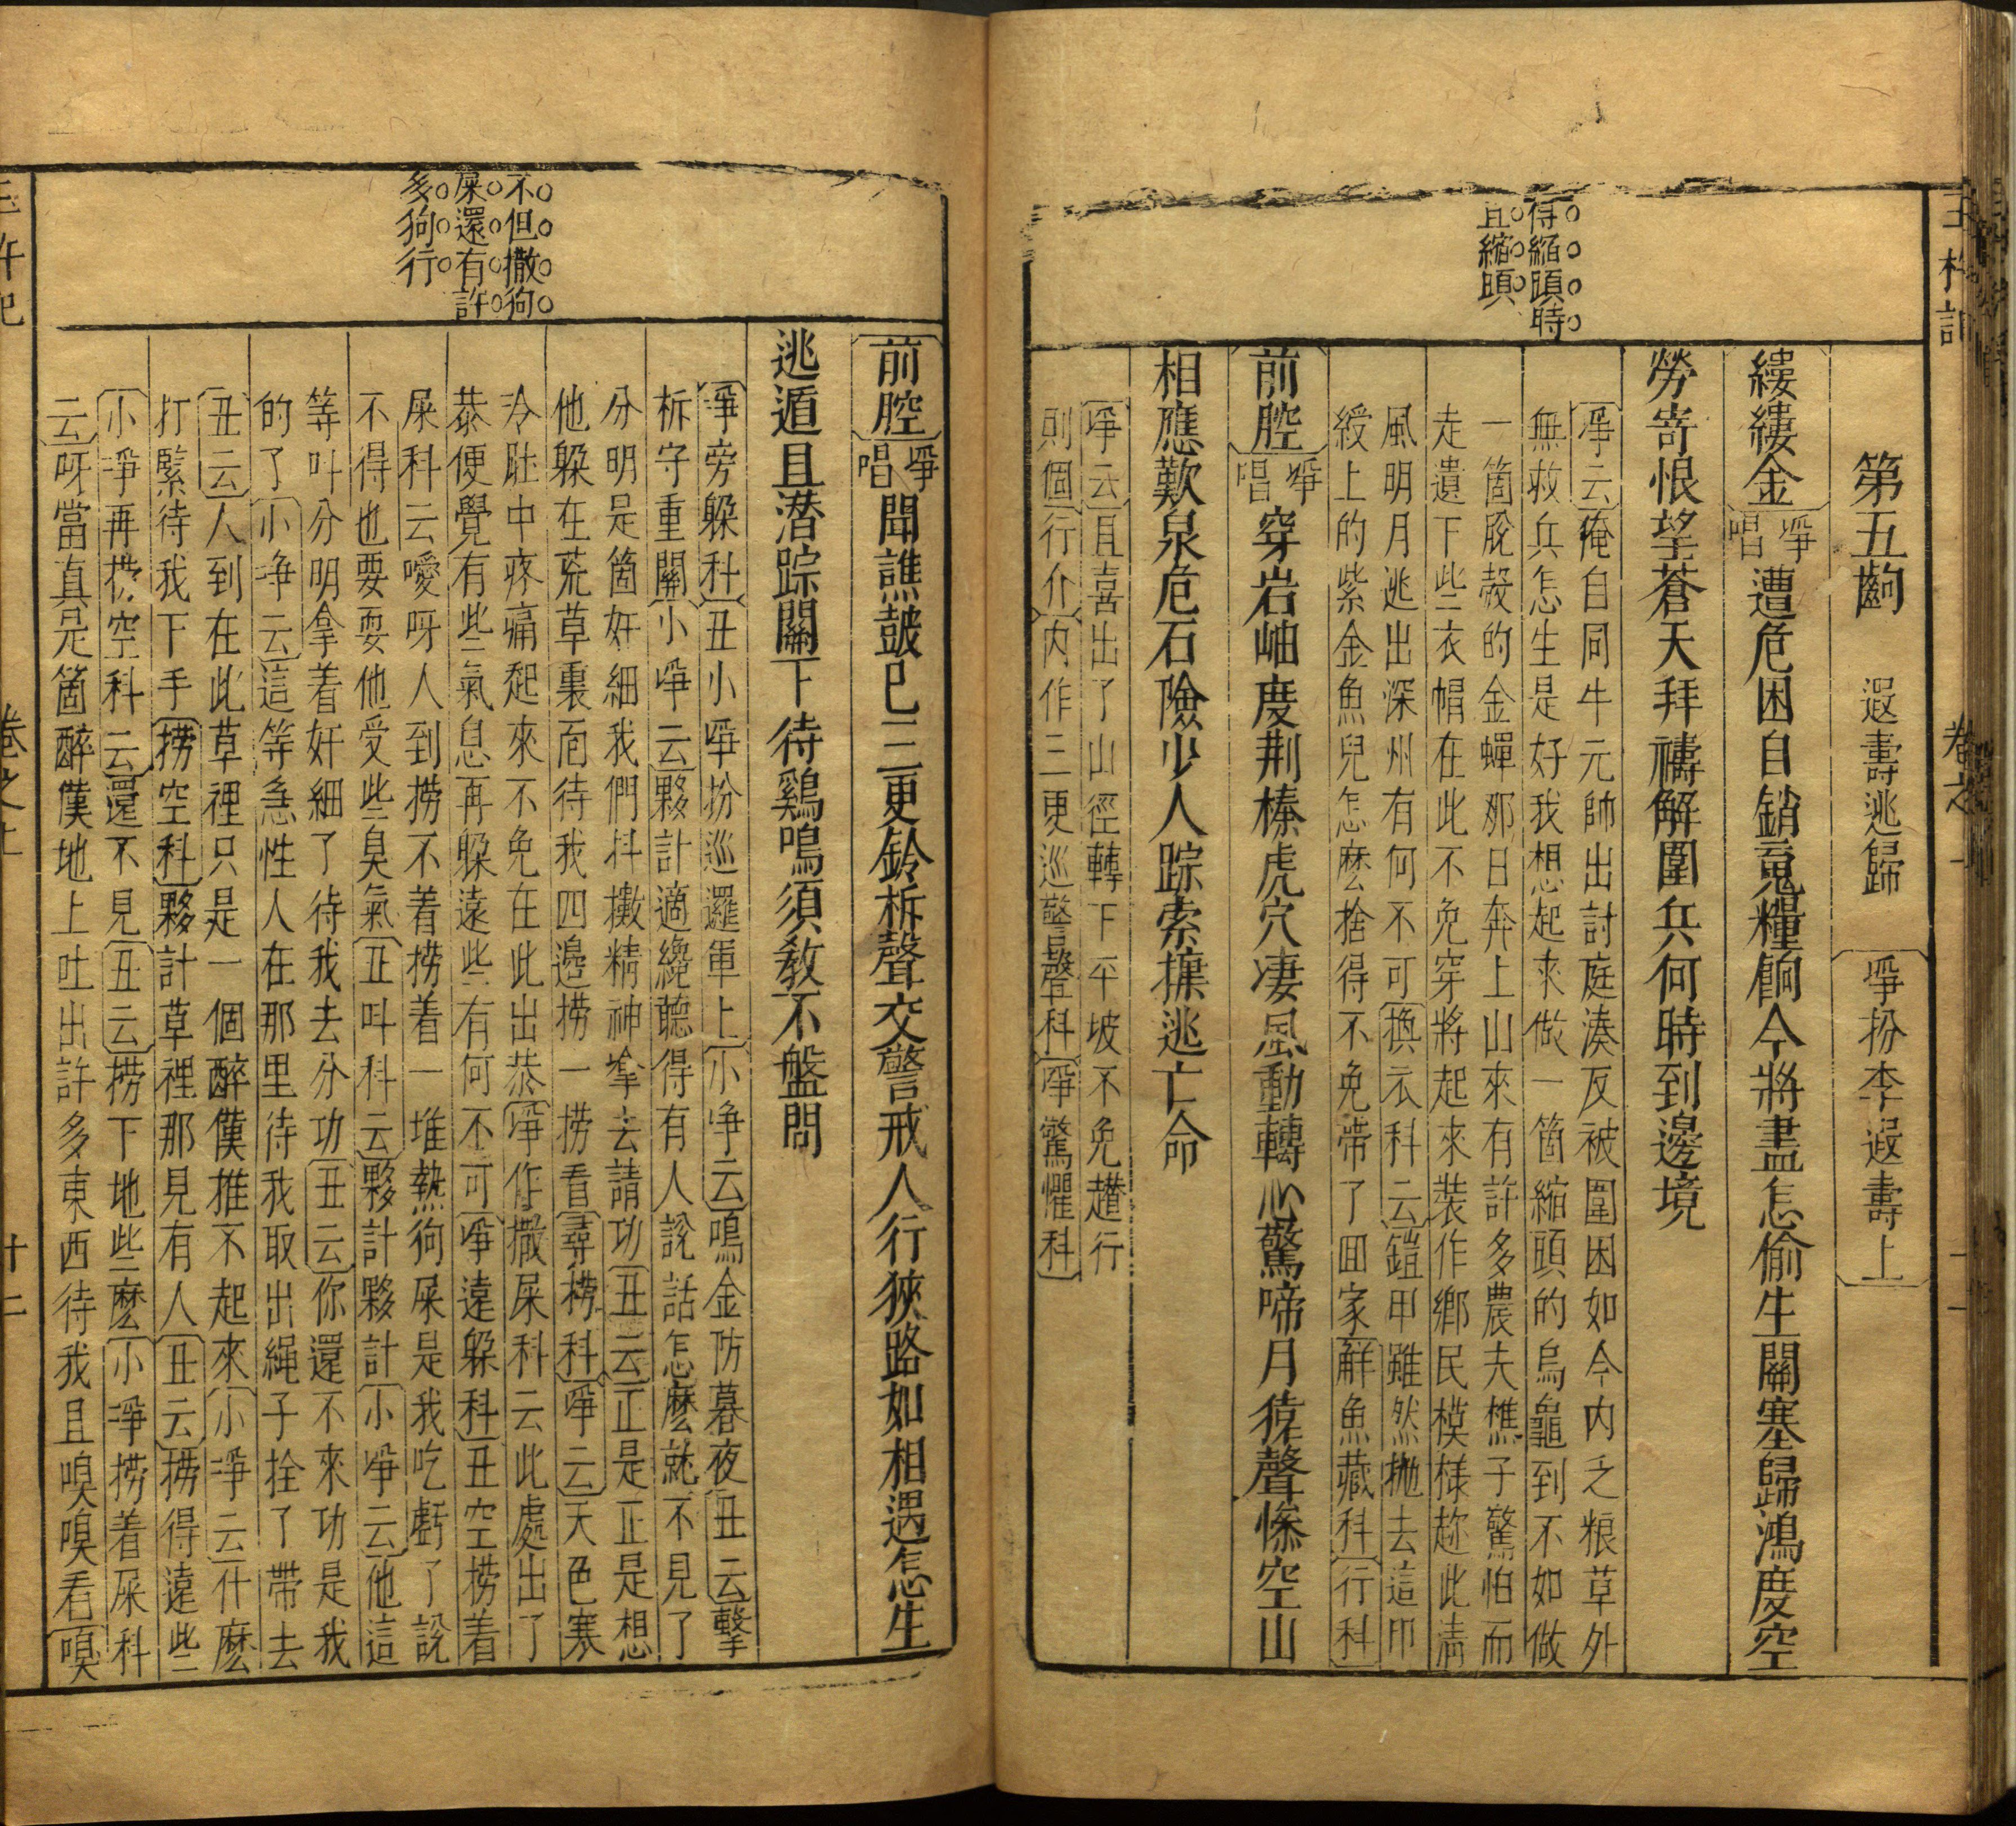 玉杵記
卷之
得縮頭時
且縮頭
第五齣　遐壽逃歸　淨扮李遐壽上
縷縷金 淨唱 遭危困自銷䰟糧餉今將盡怎偷生關塞歸鴻度空
勞寄恨望蒼天拜禱解圍兵何時到邊境
淨云 俺自同牛元帥出討庭湊反被圍困如今内乏粮草外
無救兵怎生是好我想起來做一箇縮頭的烏龜到不如做
一箇脫殼的金蟬那日奔上山來有許多農夫樵子驚怕而
走遺下些衣帽在此不免穿將起來裝作鄉民模樣趂此清
風明月逃出深州有何不可 換衣科云 鎧甲雖然抛去這印
綬上的紫金魚兒怎麽捨得不免帶了囬家 解魚藏科 行科
前腔 淨唱 穿岩岫度荆榛虎穴凄風動轉心驚啼月猿聲慘空山
相應歎泉危石險少人踪索摸逃亡命
淨云 且喜出了山徑轉下平坡不免趲行
則個 行介 内作三更巡警聲科 淨驚懼科
不但撒狗
屎還有許
多狗行
前腔 淨唱 聞譙皷已三更鈴柝聲交警戒人行狹路如相遇怎生
逃遁且潜踪關下待鷄鳴須教不盤問
淨旁躲科 丑小淨扮巡邏軍上 小淨云 鳴金防暮夜 丑云 擊
柝守重關 小淨云 夥計適纔聽得有人說話怎麽就不見了
分明是箇奸細我們抖擻精神拿去請功 丑云 正是正是想
他躲在荒草裏面待我四邊撈一撈看 尋撈科 淨云 天色寒
冷肚中疼痛起來不免在此出恭 淨作撒屎科云 此處出了
恭便覺有些氣息再躲遠些有何不可 淨遠躲科 丑空撈着
屎科云 噯呀人到撈不着撈着一堆熱狗屎是我吃虧了說
不得也要耍他受些臭氣 丑叫科云 夥計夥計 小淨云 他這
等叫分明拿着奸細了待我去分功 丑云 你還不來功是我
的了 小淨云 這等急性人在那里待我取出繩子拴了帶去
丑云 人到在此草裡只是一個醉僕推不起來 小淨云 什麽
打緊待我下手 撈空科 夥計草裡那見有人 丑云 撈得遠些
小淨再撈空科云 還不見 丑云 撈下地些麽 小淨撈着屎科
云 呀當真是箇醉僕地上吐出許多東西待我且嗅嗅看 嗅
玉杵記
卷之上
十二